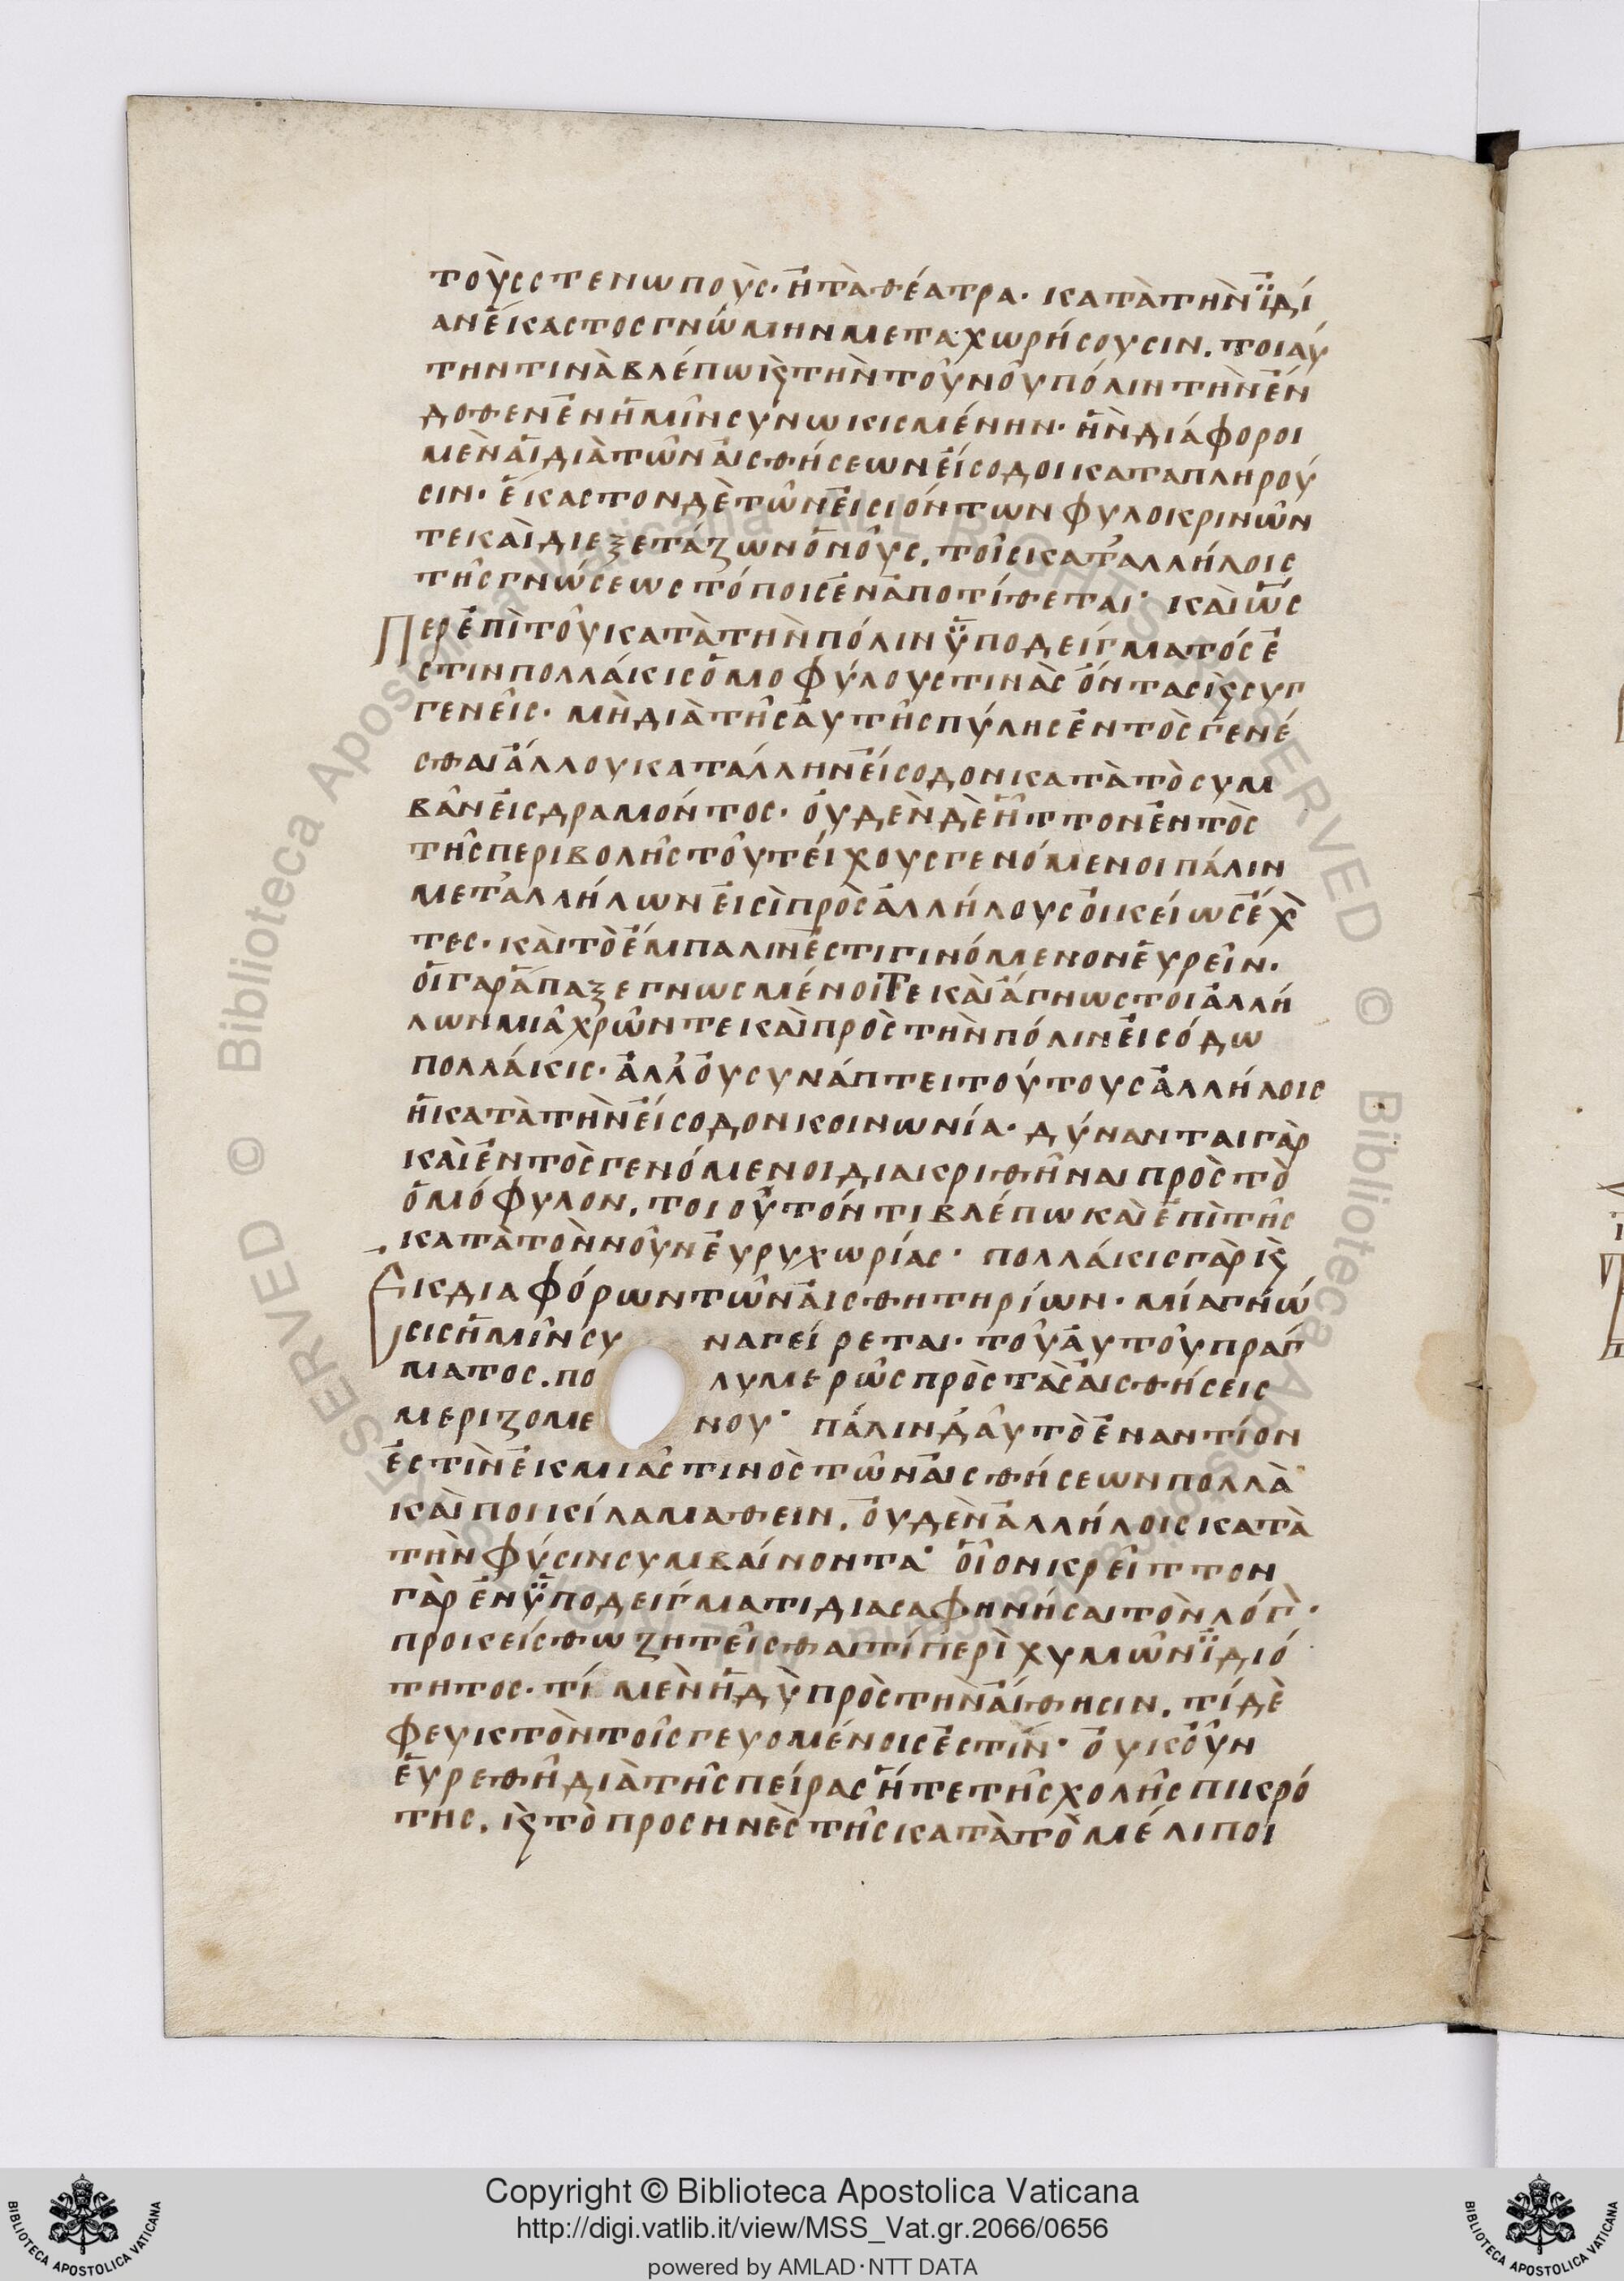 τοὺς στενωποὺς· ἢ τὰ θέατρα· κατὰ τὴν ϊδί
αν ἕκαστος γνώμην μεταχωρήσουσιν. τοιαύ
την τινὰ βλέπω ϗ τὴν τοῦ νοῦ πόλιν τὴν ἔν
δοθεν ἐν ἡμῖν συνωκισμένην· ἣν διάφοροι
μὲν αἱ διὰ τῶν αἰσθήσεων εἴσοδοι καταπληροῦ
σιν· ἕκαστον δὲ τῶν εἰσιόντων φυλοκρινῶν
τε καὶ διεξετάζων ὁ νοῦς, τοῖς καταλλήλοις
τῆς γνώσεως τόποις ἐναποτίθεται· καὶ ὥσ
Περ ἐπὶ τοῦ κατὰ τὴν πόλιν ὑποδείγματός ἐ
στιν πολλάκις ὁμοφύλους τινὰς ὄντας ϗ συγ
γενεῖς· μὴ διὰ τῆς αὐτῆς πύλης ἐντὸς γενέ
σθαι ἄλλου κατ' ἄλλην εἴσοδον κατὰ τὸ συμ
βὰν εἰσδραμόντος· οὐδὲν δὲ ἧττον ἐντὸς
τῆς περιβολῆς τοῦ τείχους γενόμενοι πάλιν
μετ' ἀλλήλων εἰσὶ πρὸς ἀλλήλους οἰκείως ἔχ
τες· καὶ τὸ ἔμπαλιν ἐστι γινόμενον εὑρεῖν·
οἱ γὰρ ἀπαξεγνωσμένοι τε καὶ ἄγνωστοι ἀλλή
λων μιᾷ χρῶντε καὶ πρὸς τὴν πόλιν εἰσόδω
πολλάκις· ἀλλ' οὐ συνάπτει τούτους ἀλλήλοις
ἡ κατὰ τὴν εἴσοδον κοινωνία· δύνανται γὰρ
καὶ ἐντὸς γενόμενοι διακριθῆναι πρὸς τὸ
ὁμόφυλον. τοιοῦτόν τι βλέπω καὶ ἐπὶ τῆς
κατὰ τὸν νοῦν εὐρυχωρίας· πολλάκις γὰρ ϗ
Ἐκ διαφόρων τῶν αἰσθητηρίων· μία γνῶ
σις ἡμῖν συναγείρεται· τοῦ αὐτοῦ πράγ
ματος. πολυμερῶς πρὸς τὰς αἰσθήσεις
μεριζομένου· πάλιν δ' αὖ τὸ ἐναντίον
ἐστὶν ἐκ μιᾶς τινὸς τῶν αἰσθήσεων πολλὰ
καὶ ποικίλα μαθειν. οὐδὲν ἀλλήλοις κατὰ
τὴν φύσιν συμβαίνοντα· οἷον κρεῖττον
γὰρ ἐν ὑποδείγματι διασαφηνήσαι τὸν λόγ·
προκείσθω ζητεῖσθαι τί περὶ χυμῶν ϊδιό
τητος· τί μὲν ἡδὺ πρὸς τὴν αἴσθησιν. τί δὲ
φευκτὸν τοῖς γευομένοις ἐστίν· οὐκοῦν
εὑρέθη διὰ τῆς πείρας ἥ τε τῆς χολῆς πικρό
της. ϗ τὸ προσηνὲς τῆς κατὰ τὸ μέλι ποι
Copyright © Biblioteca Apostolica Vaticana
http://digi.vatlib.it/view/MSS_Vat.gr.2066/0656
powered by AMLAD·NTT DATA